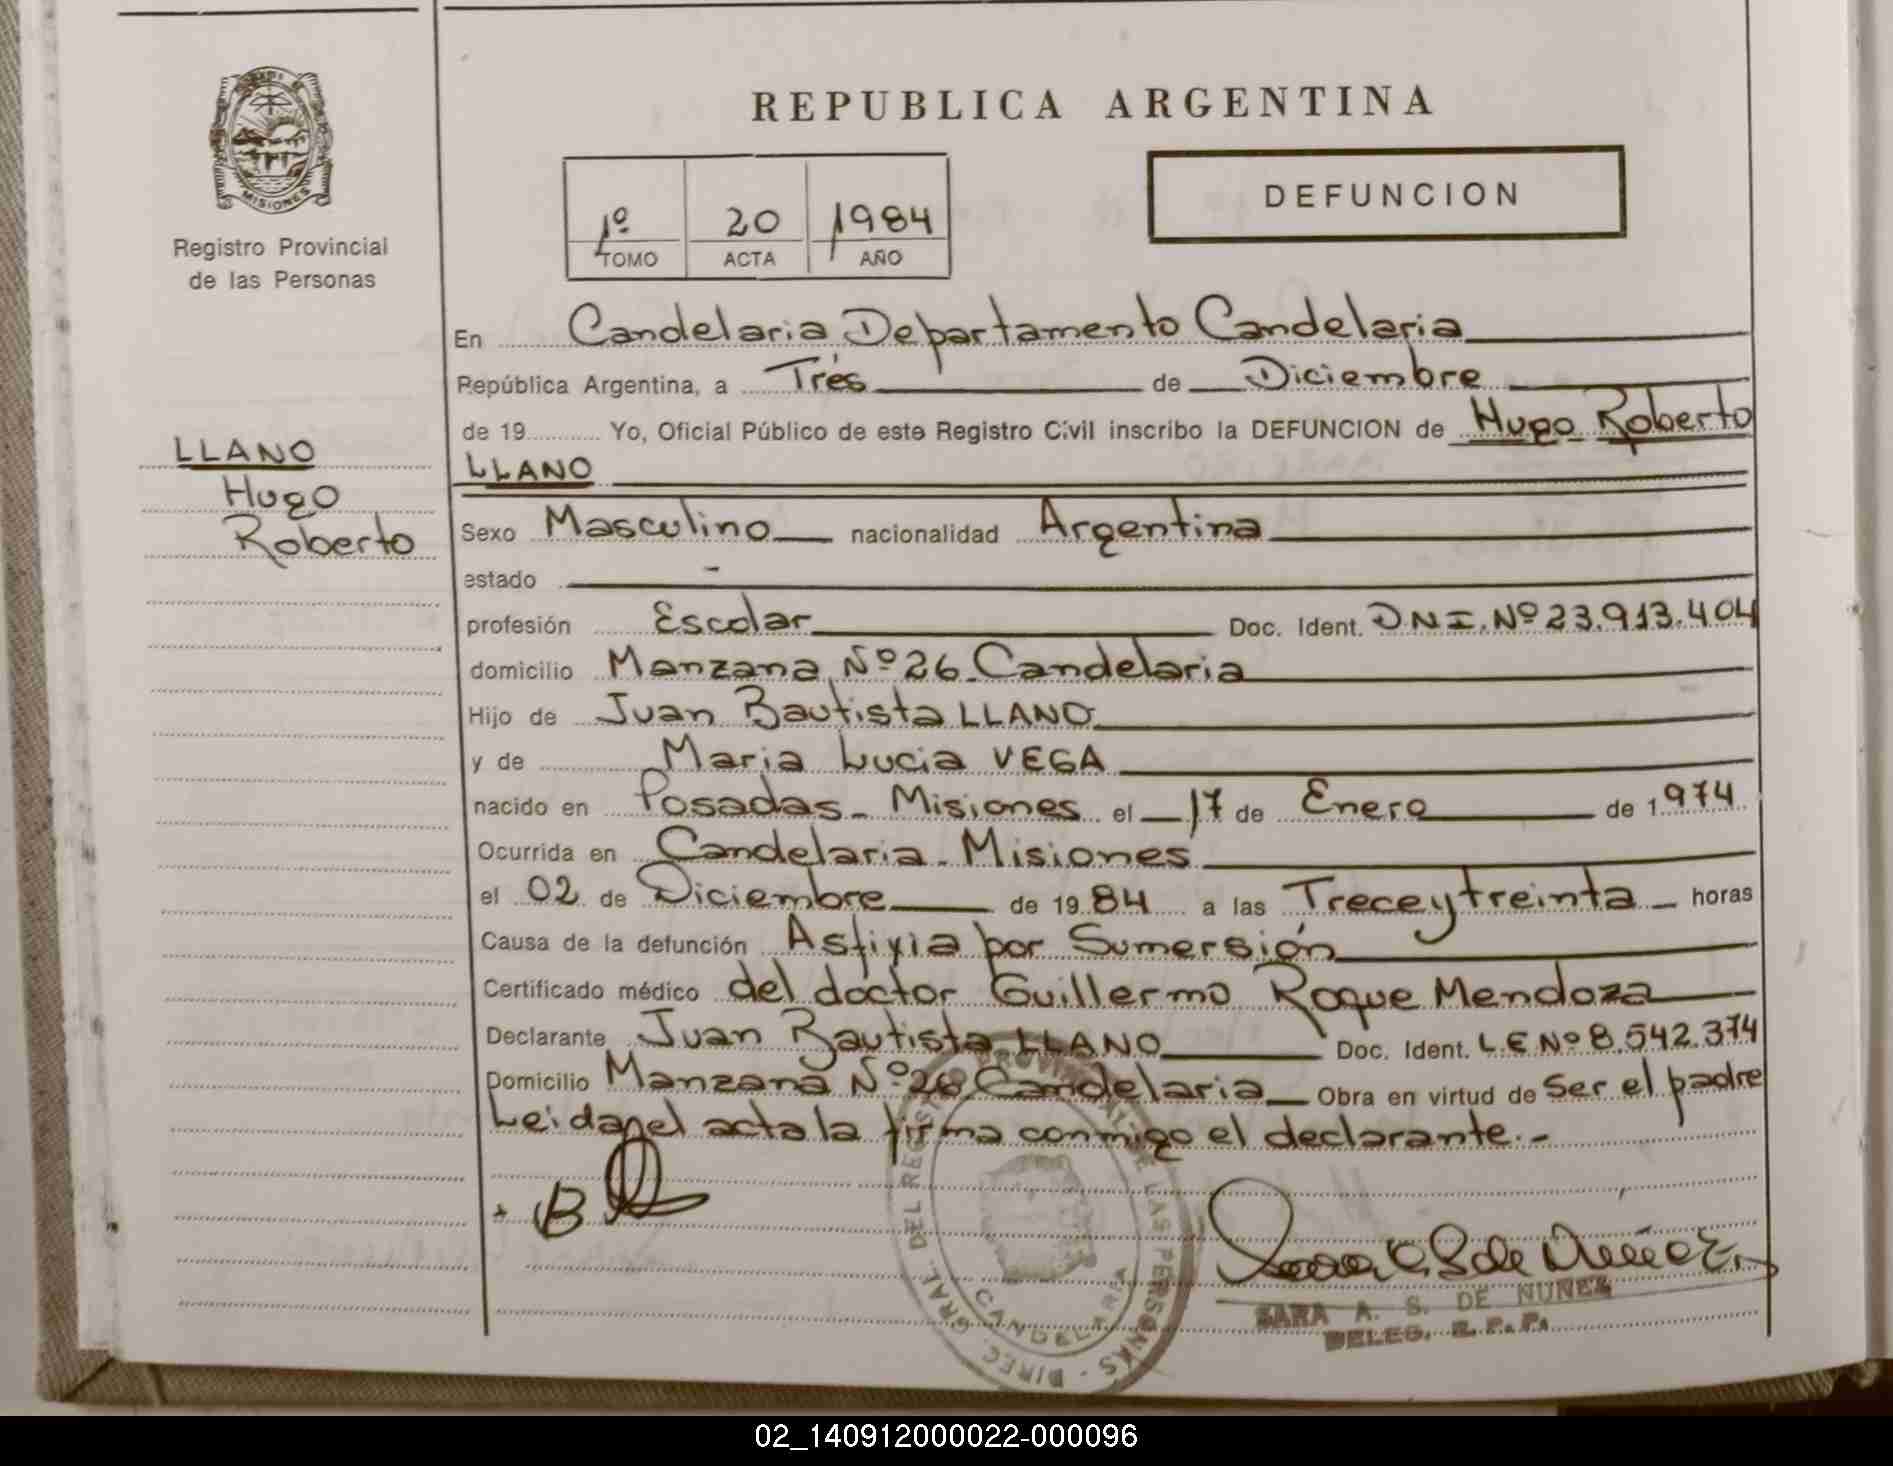 MISIONES
Registro Provincial
de las Personas
REPUBLICA ARGENTINA
DEFUNCION
1º 20 1984
TOMO ACTA AÑO
En Candelaria Departamento Candelaria
República Argentina, a Trés de Diciembre
de 19 Yo, Oficial Público de este Registro Civil inscribo la DEFUNCION de Hugo Roberto
LLANO
LLANO
Hugo
Roberto
Sexo Masculino nacionalidad Argentina
estado -
profesión Escolar Doc. Ident. D N I. Nº 23.913.404
domicilio Manzana Nº 26 Candelaria
Hijo de Juan Bautista LLANO
y de Maria Lucia VEGA
nacido en Posadas - Misiones el 17 de Enero de 1974
Ocurrida en Candelaria - Misiones
el 02 de Diciembre de 1984 a las Trece y treinta horas
Causa de la defunción Asfixia por Sumersión
Certificado médico del doctor Guillermo Roque Mendoza
Declarante Juan Bautista LLANO Doc. Ident. L.E Nº 8.542.374
Domicilio Manzana Nº 26 Candelaria Obra en virtud de Ser el padre
Leida el acta la firma conmigo el declarante.-
DIREC. GRAL. DEL REGISTRO PROVINCIAL DE LAS PERSONAS
CANDELARIA
SARA A. S. DE NUÑEZ
DELEG. R. P. P.
02_140912000022-000096